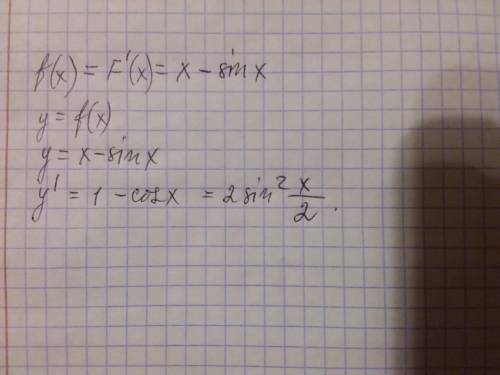 f(x) = F'(x) = x - sin x
y = f(x)
y = x - sin x
y' = 1 - cos x = 2 sin² x/2.